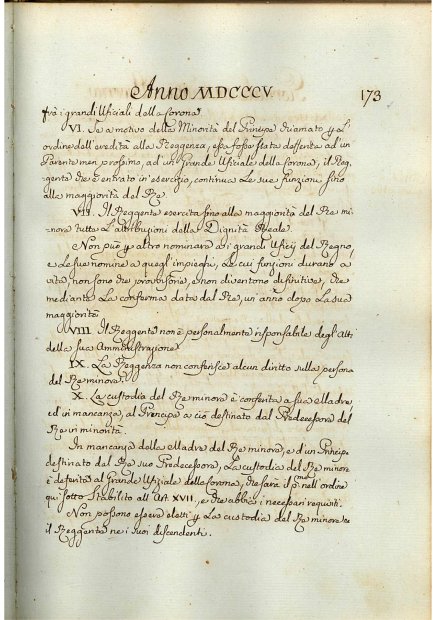 Anno MDCCCV 173
frà i grandi Ufiziali della Corona
VI. Se a motivo della Minorità del Principe chiamato
ordine dell'eredità alla Reggenza, essa fosse stata defferita ad un
Parente men prossimo, ad un Grande Ufiziale della Corona, il Reg-
gente che è entrato in esercizio, continua le sue funzioni fino
alla maggiorità del Re.
VII. Il Reggente esercita fino alla maggiorità del Re mi-
nore tutte l'attribuzioni della Dignità Reale.
Non può altro nominare a i grandi Ufizj del Regno,
e le sue nomine a quegl'impieghi, le cui funzioni durano a
vita, non sono che provvisorie, e non diventono difinitive, che
mediante la conferma data dal Re, un'anno dopo la sua
maggiorità
VIII. Il Reggente non è personalmente risponsabile degl'Atti
della sua Amministrazione
IX. La Reggenza non conferisce alcun diritto sulla persona
del Re minore.
X. La custodia del Re minore è conferita a sua Madre,
ed in mancanza, al Principe a ciò destinato dal Predecessore del
Re in minorità.
In mancanza della Madre del Re minore, e d'un Principe
destinato dal Re suo Predecessore, la custodia del Re minore
è deferita al Grande Ufiziale della Corona, che sarà il pmo nell'ordine
qui sotto stabilito all'Art XVII, e che abbia i necessari requisiti.
Non possono essere eletti la custodia del Re minore
il Reggente ne i suoi discendenti.